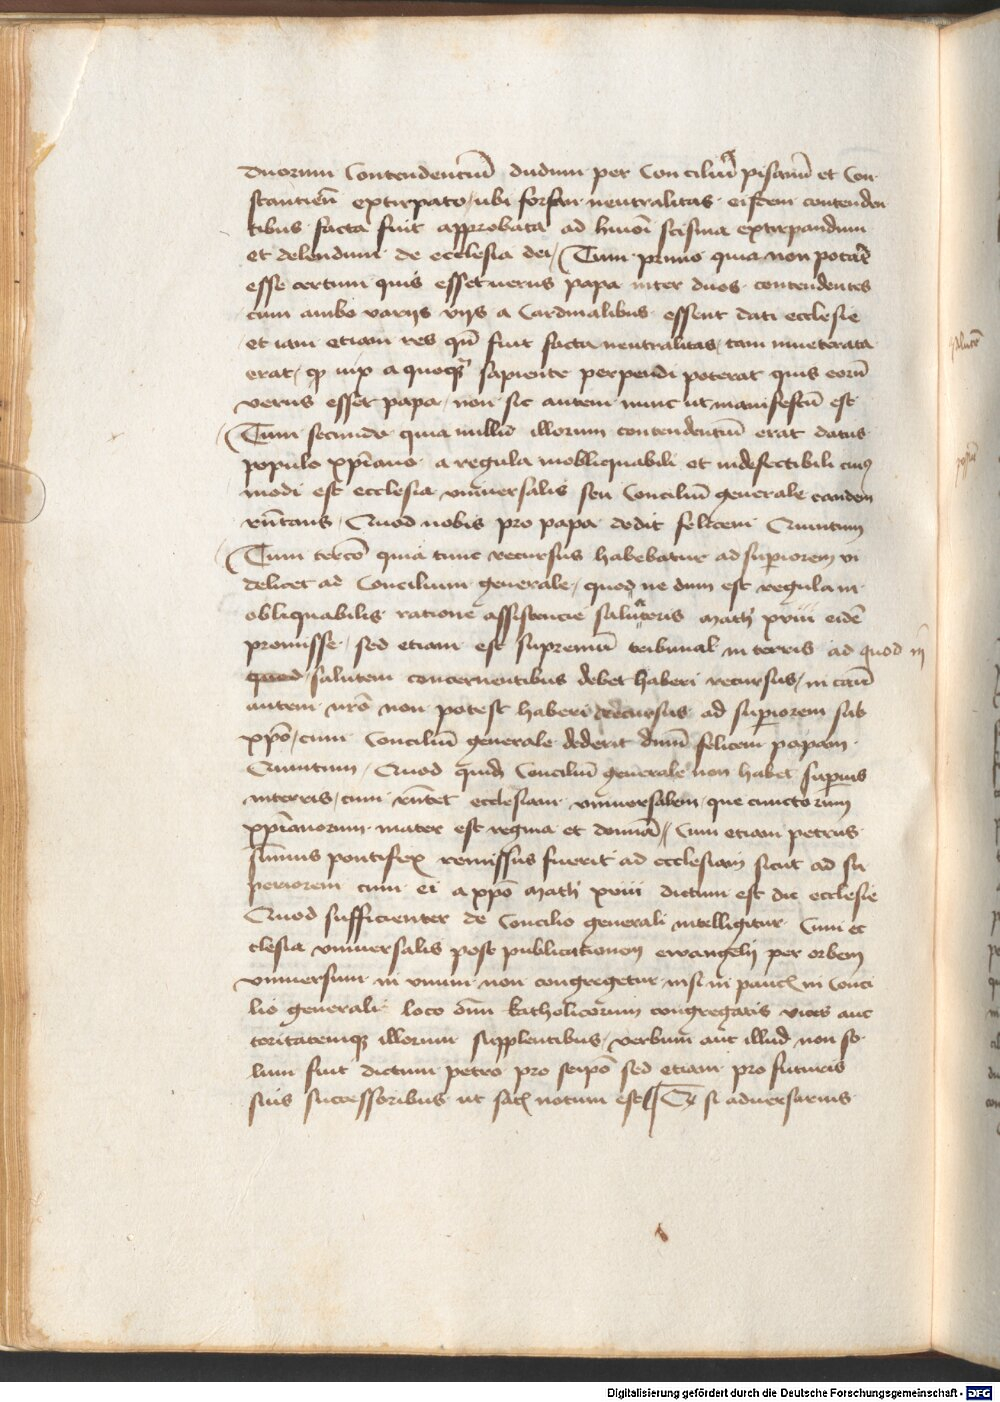 duorum Contendentiū dudum per Conciliū pisanū et Con
stantieñ extirpato / ubi forsan neutralitas eisdem contenden
tibus facta fuit approbata ad hmōi scisma extirpandum
et delendum de ecclesia dei / Tum primo quia non poterat
esse certum quis esset verus papa inter duos contendentes
cum ambo varijs vijs a Cardinalibus essent dati ecclesie
et iam etiam res qñ fuit facta neutralitas / tam inueterata
erat / qp vix a quoqȝ sapiente perpendi poterat quis eorū
verus esset papa / non sic autem nunc ut manifestū est
Tum secundo quia nullus illorum contendentiū erat datus
populo xp̄iano a regula inobliquabili et indefectibili cuiꝰ
modi est ecclesia vniuersalis seu Conciliū generale eandem
rñtans / Quod nobis pro papa dedit felicem Quintum
Tum tercō quia tunc recursus habebatur ad superiorem vi
delicet ad Concilium generale / quod ne dum est regula in
obliquabilis ratione assistencie saluatoris Math xviii eidē
promisse / sed etiam est supremū tribunal in terris ad quod in
salutem concernentibus debet haberi recursus / in casu
autem nrō non potest haberi recursus ad superiorem sub
xp̄o / cum Conciliū generale dederit dnm̄ felicem papam
Quintum / Quod quidem Conciliū generale non habet superius
in terris / cum rñtet ecclesiam vniuersalem / que cunctorum
xp̄ianorum mater est regina et domina // Cum etiam petrus
sūmus pontifex remissus fuerit ad ecclesiam sicut ad su
periorem cum ei a xp̄o Math xviii dictum est dic ecclesie
Quod sufficienter de Concilio generali intelligitur Cum ec
clesia vniuersalis post publicationem ewangelij per orbem
vniuersum in vnum non congregetur nisi in paucis in Conci
lio generali loco om̄iu katholicorum congregatis vices auc
toritatemqȝ illorum supplentibus / verbum aut̄ illud non so
lum fuit dictum petro pro seipō sed etiam pro futuris
suis successoribus ut satis notum est // Et si aduersarius
Digitalisierung gefördert durch die Deutsche Forschungsgemeinschaft - DFG